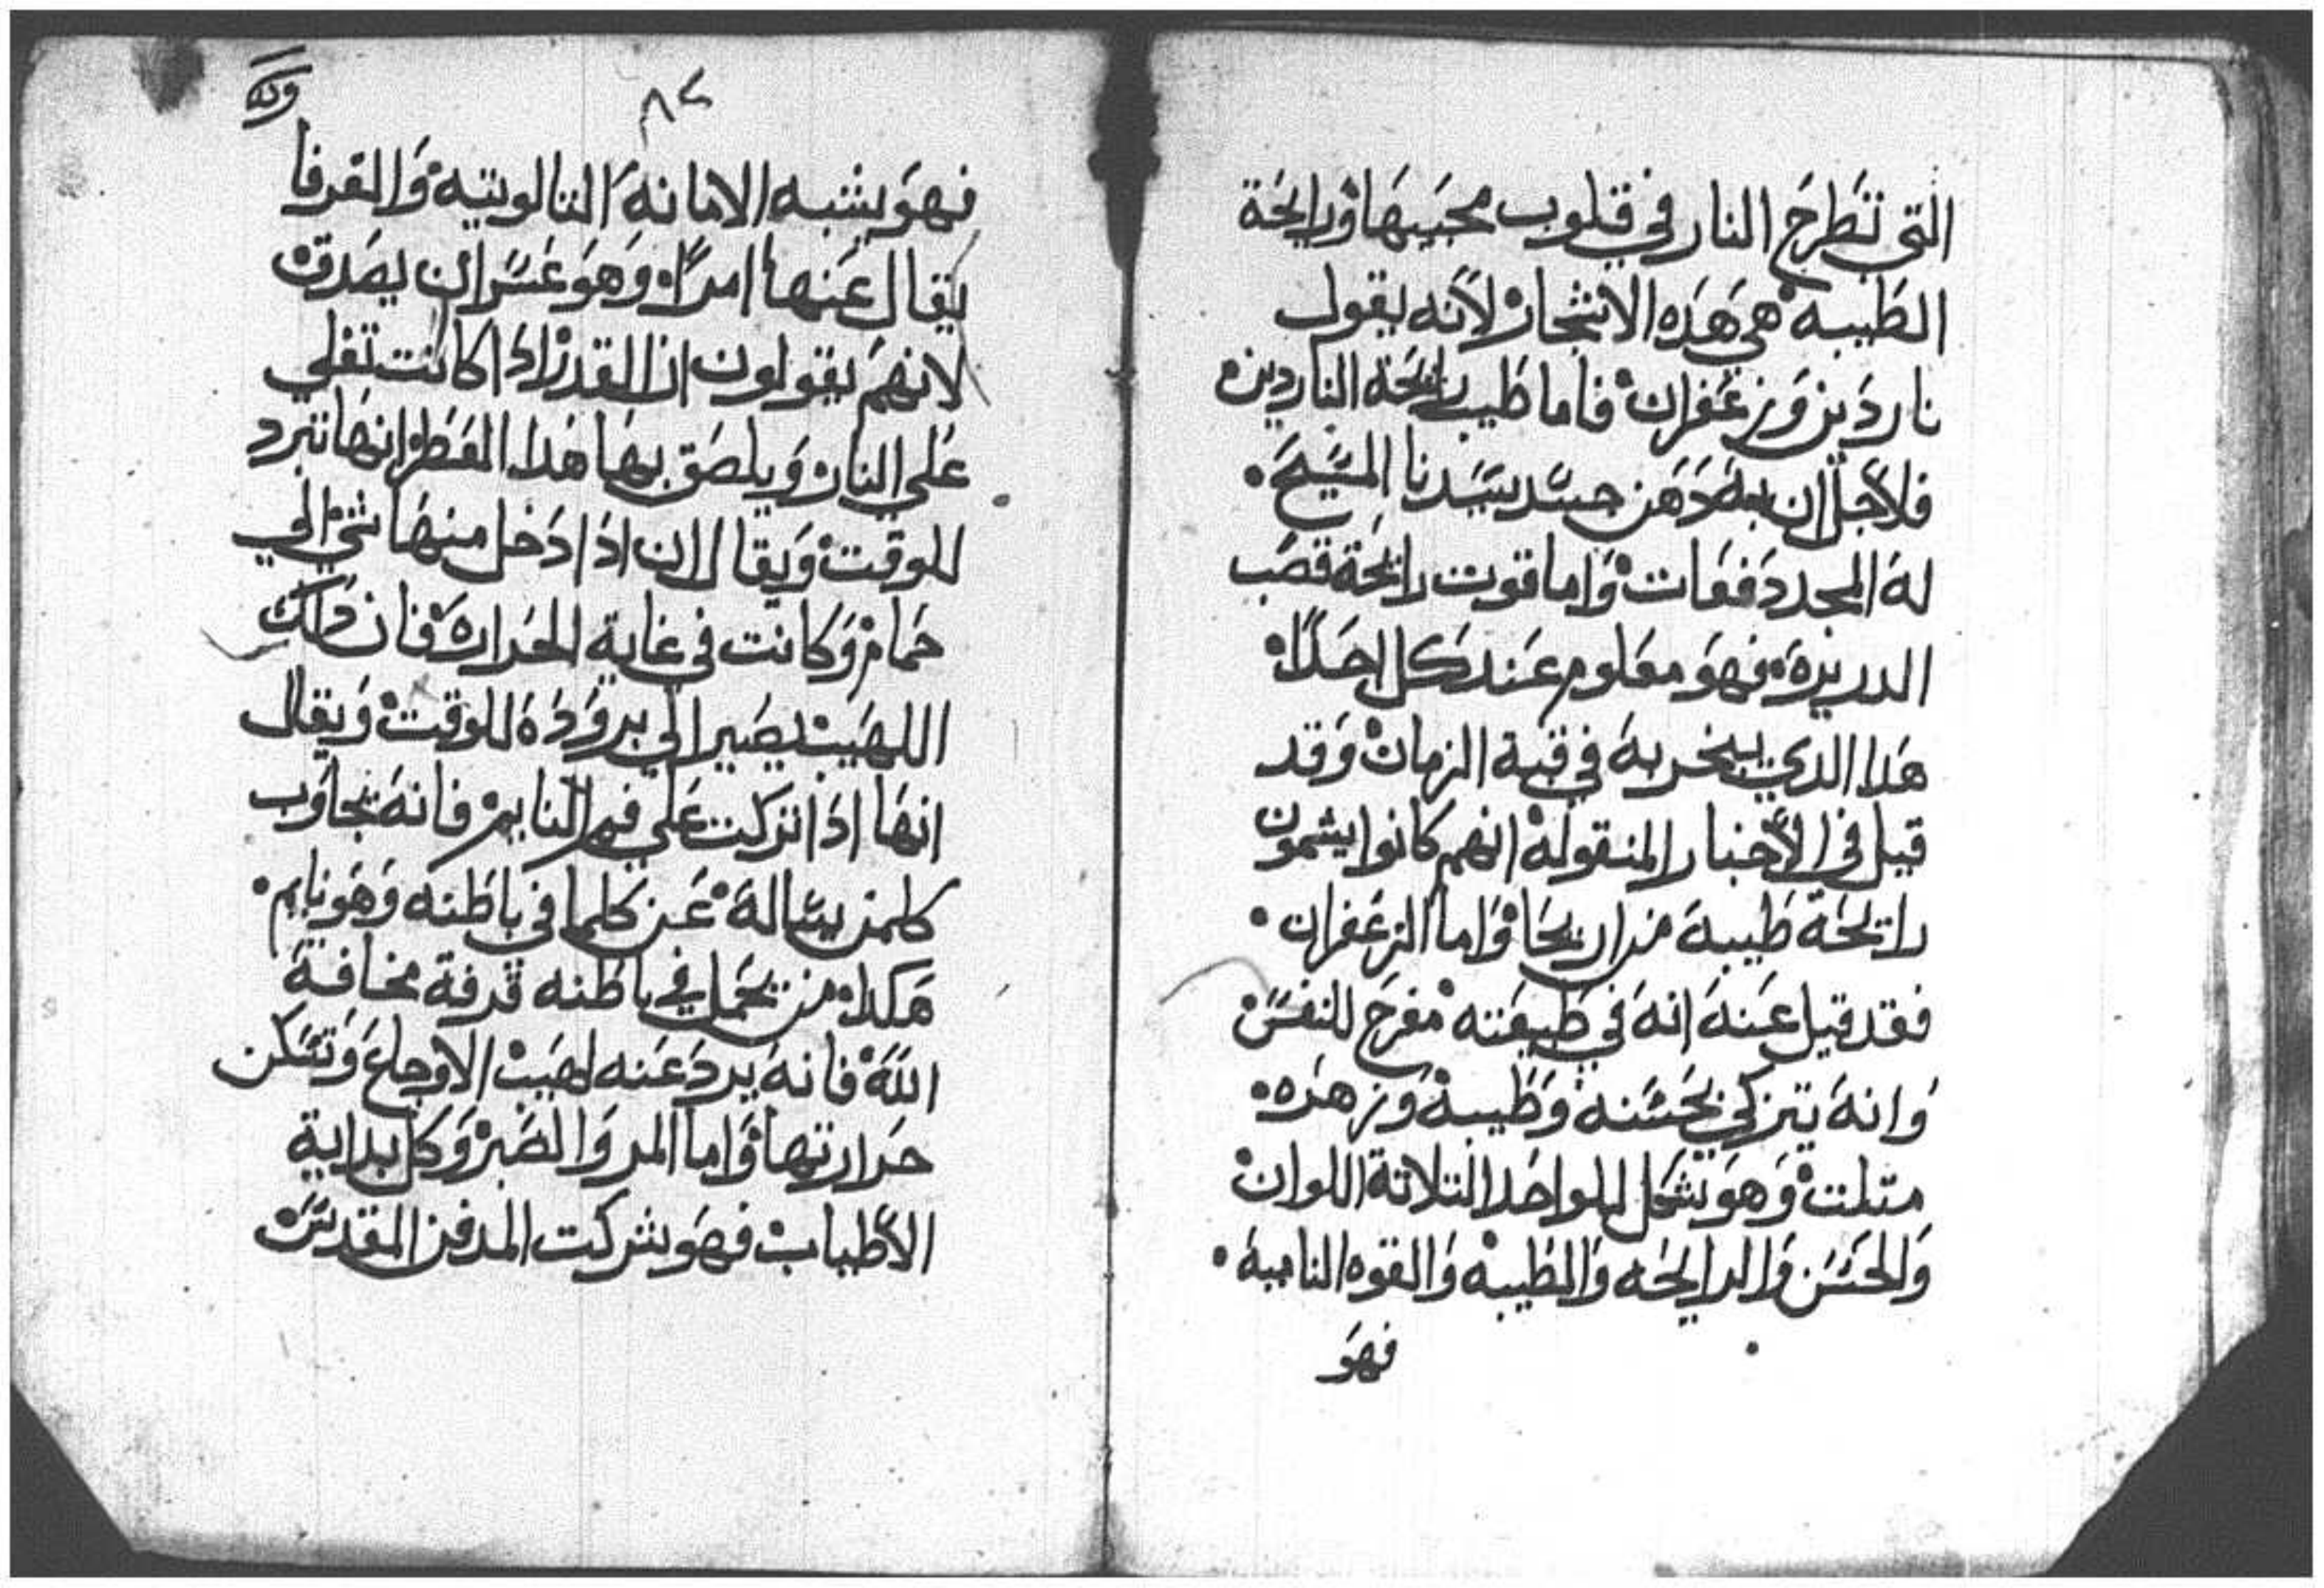 التي تَطرحَ النار في قلوب محبيهَا ورايحَة
الطَيبه هي هَده الاشجار لانه يقول
ناردَين وَزعَفران فاما طيب رايحَة الناردين
فلاجل ان به دَهَن جسَد سَيدنا المسَيحَ
له المجد دفعَات وَاما قوت رايحَة قصَب
الدريره فهوَ معَلوم عَند كل احَدًا
هَدا الدي يبخر به في قبة الزمان وَقد
قيل في الأخبار المنقوله انهم كانوا يشمون
رايحَة طَيبة من اريحَا وَاما الزعَفران
فقد قيل عَنه انه في طَبيعَته مفرحَ للنفسَ
وَانه يتزكي بحَسَنه وَطَيبه وَزهَره
متلت وَهوَ يشكل للواحَد التلاتة اللوان
وَالحَسَن وَالرايحَه وَالطَيبه وَالقوه الناميه
فهوَ
٨٢
فهوَ يشبه الامانه التالوتيه وَالقرفا
يقال عَنها امرًا وَهوَ عَسَر ان يصَدق
لانهم يقولون ان القدر ادَا كانت تغلي
عَلي النار وَيلصَق بهَا هَدا العَطر انهَا تبرد
للوقت وَيقال ان ادَا دَخل منهَا شي الي
حَمام وَكانت في غاية الحَراره فان دَلك
اللهَيب يصَير الي برودَة للوقت وَيقال
انهَا ادَا تركت عَلي فم النايم فانه يجاوَب
كلمن يسَاله عَن كلما في باطَنه وَهَو نايم
هَكدا من يحَمل في باطَنه قرفة مخافة
اللهَ فانه يبردَ عَنه لهَيب الاوجاعَ وَتسَكن
حَرارتهَا وَاما المر وَالصَبر وَكل بداية
الأطياب فهوَ يشركت المدفن المقدسَ